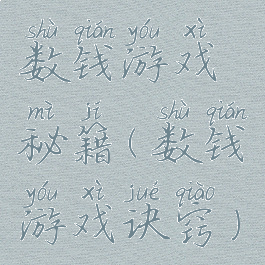 shù qián yóu xì
数钱游戏
mì jí shù qián
秘籍(数钱
yóu xì jué qiào
游戏诀窍)